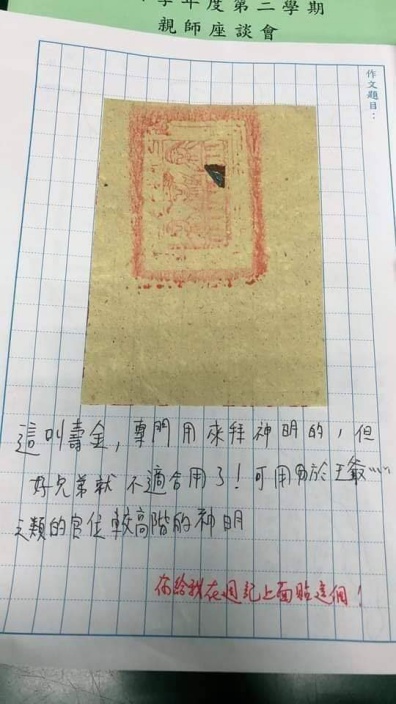 學年度第二學期
親師座談會
作文題目：
這叫壽金，專門用來拜神明的，但
好兄弟就不適合用了！可用於王爺
之類的官位較高階的神明
你給我在週記上面貼這個！